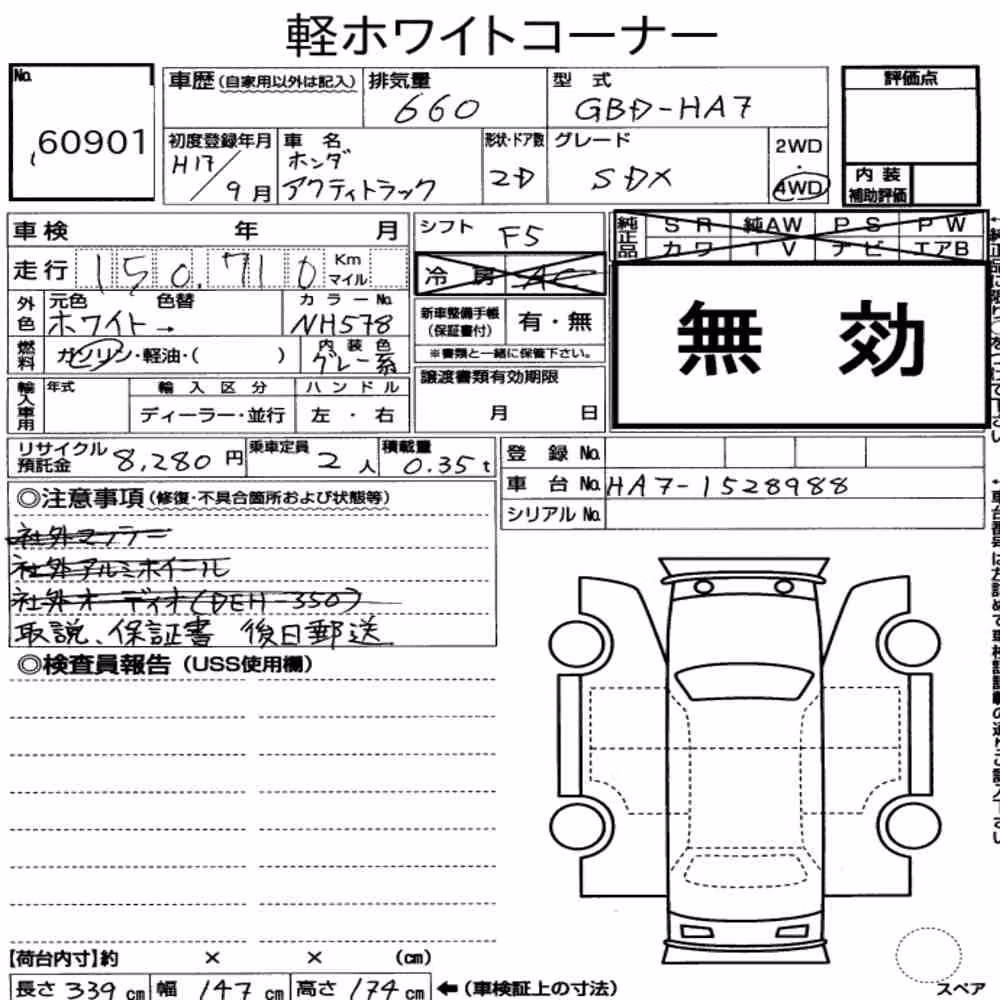 軽ホワイトコーナー
No. 60901
車歴(自家用以外は記入) 排気量 660 型式 GBD-HA7
初度登録年月 H17/9月 車名 ホンダ アクティトラック 形状・ドア数 2D グレード SDX 2WD・4WD
評価点
内装補助評価
車検 年 月
走行 150,710 Km マイル
外色 元色 ホワイト→ 色替 カラーNo. NH578
燃料 ガソリン・軽油・( ) 内装色 グレー系
輸入車用 年式 輸入区分 ディーラー・並行 ハンドル 左・右
シフト F5
冷房 AC
新車整備手帳(保証書付) 有・無
※書類と一緒に保管下さい。
譲渡書類有効期限
月 日
純正品 SR 純AW PS PW
カワ TV ナビ エアB
無効
リサイクル預託金 8,280円 乗車定員 2人 積載量 0.35t
登録No.
車台No. HA7-1528988
シリアルNo.
◎注意事項(修復・不具合箇所および状態等)
社外マフラー
社外アルミホイール
社外オーディオ(DEH-350)
取説、保証書 後日郵送
◎検査員報告(USS使用欄)
【荷台内寸】約 × × (cm)
長さ 339cm 幅 147cm 高さ 174cm ←(車検証上の寸法)
スペア